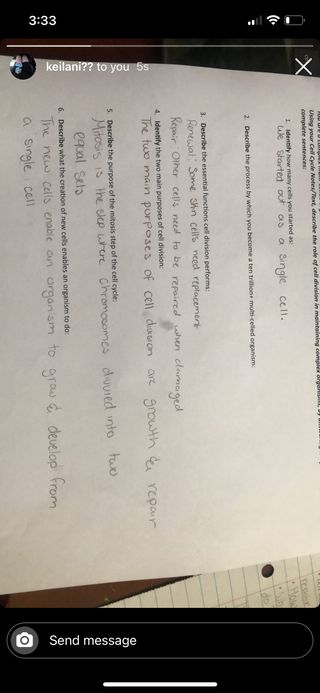 3:33
keilani?? to you 5s
Using your Cell Cycle Notes/Text, describe the role of cell division in maintaining complex
complete sentences:
1. Identify how many cells you started as:
We started out as a single cell.
2. Describe the process by which you become a ten trillion+ multi-celled organism:
3. Describe the essential functions cell division performs:
Renewal: Some skin cells need replacement
Repair: Other cells need to be repaired when damaged
4. Identify the two main purposes of cell division:
The two main purposes of cell division are growth & repair
5. Describe the purpose of the mitosis step of the cell cycle:
Mitosis is the step where chromosomes divvied into two
equal sets
6. Describe what the creation of new cells enables an organism to do:
The new cells enable an organism to grow & develop from
a single cell
Send message